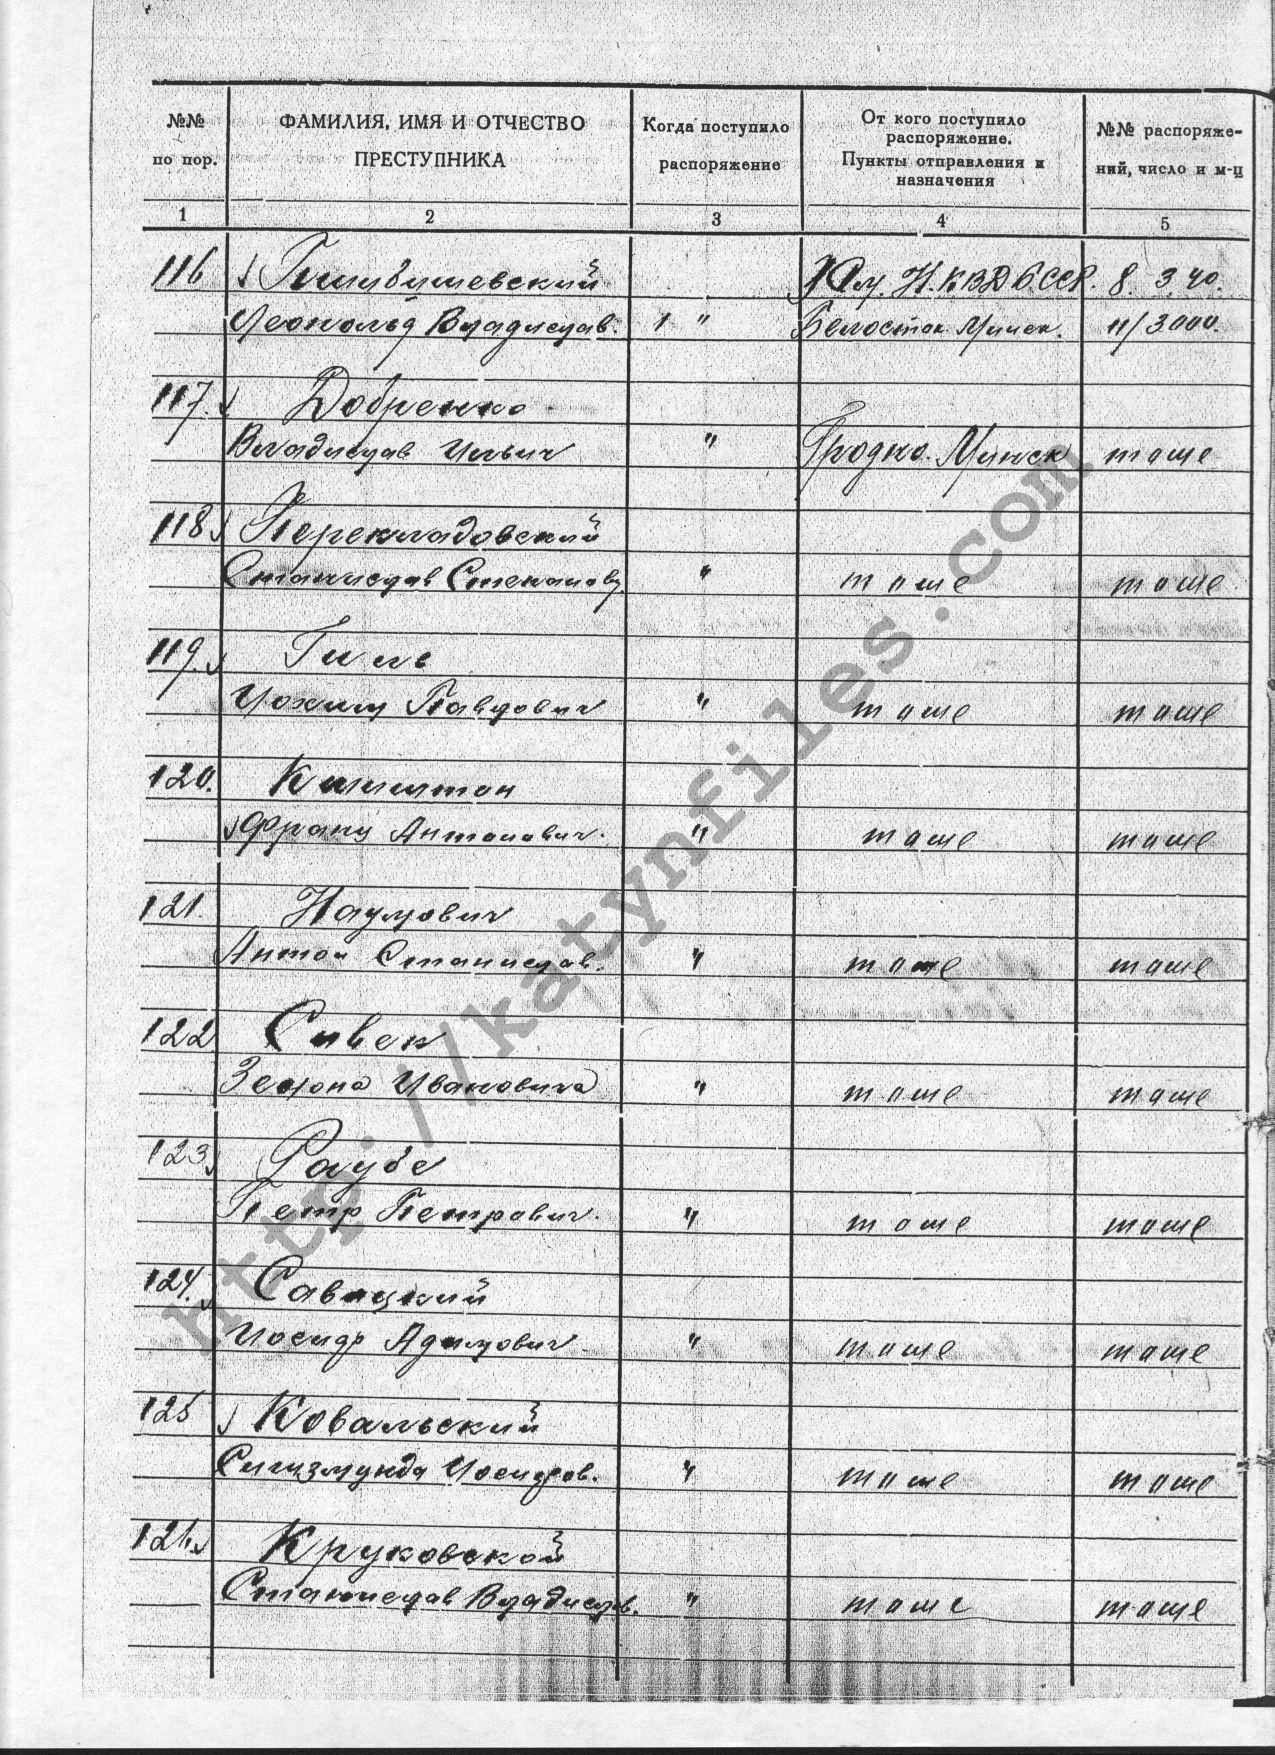 №№ по пор.
ФАМИЛИЯ, ИМЯ И ОТЧЕСТВО ПРЕСТУПНИКА
Когда поступило распоряжение
От кого поступило распоряжение. Пункты отправления и назначения
№№ распоряжений, число и м-ц
1 2 3 4 5
116 Н.КВД БССР. 8. 3. 40.
Леопольд Владислав. 1 " Белосток Минск. н/3000.
117. Добренко
Владислав Ильич " Гродно. Минск тоже
118 Перекладовский
Станислав Степанов " тоже тоже
119. Гиль
Иохим Павлович " тоже тоже
120. Капитан
Франц Антонович. " тоже тоже
121. Наумович
Антон Станислав. " тоже тоже
122 Сивек
Зенона Ивановича " тоже тоже
123 Раубе
Петр Петрович. " тоже тоже
124. Савицкий
Иосиф Адамович " тоже тоже
125 Ковальский
Сигизмунда Иосифов. " тоже тоже
126. Круковской
Станислав Владислав. " тоже тоже
http://katynfiles.com